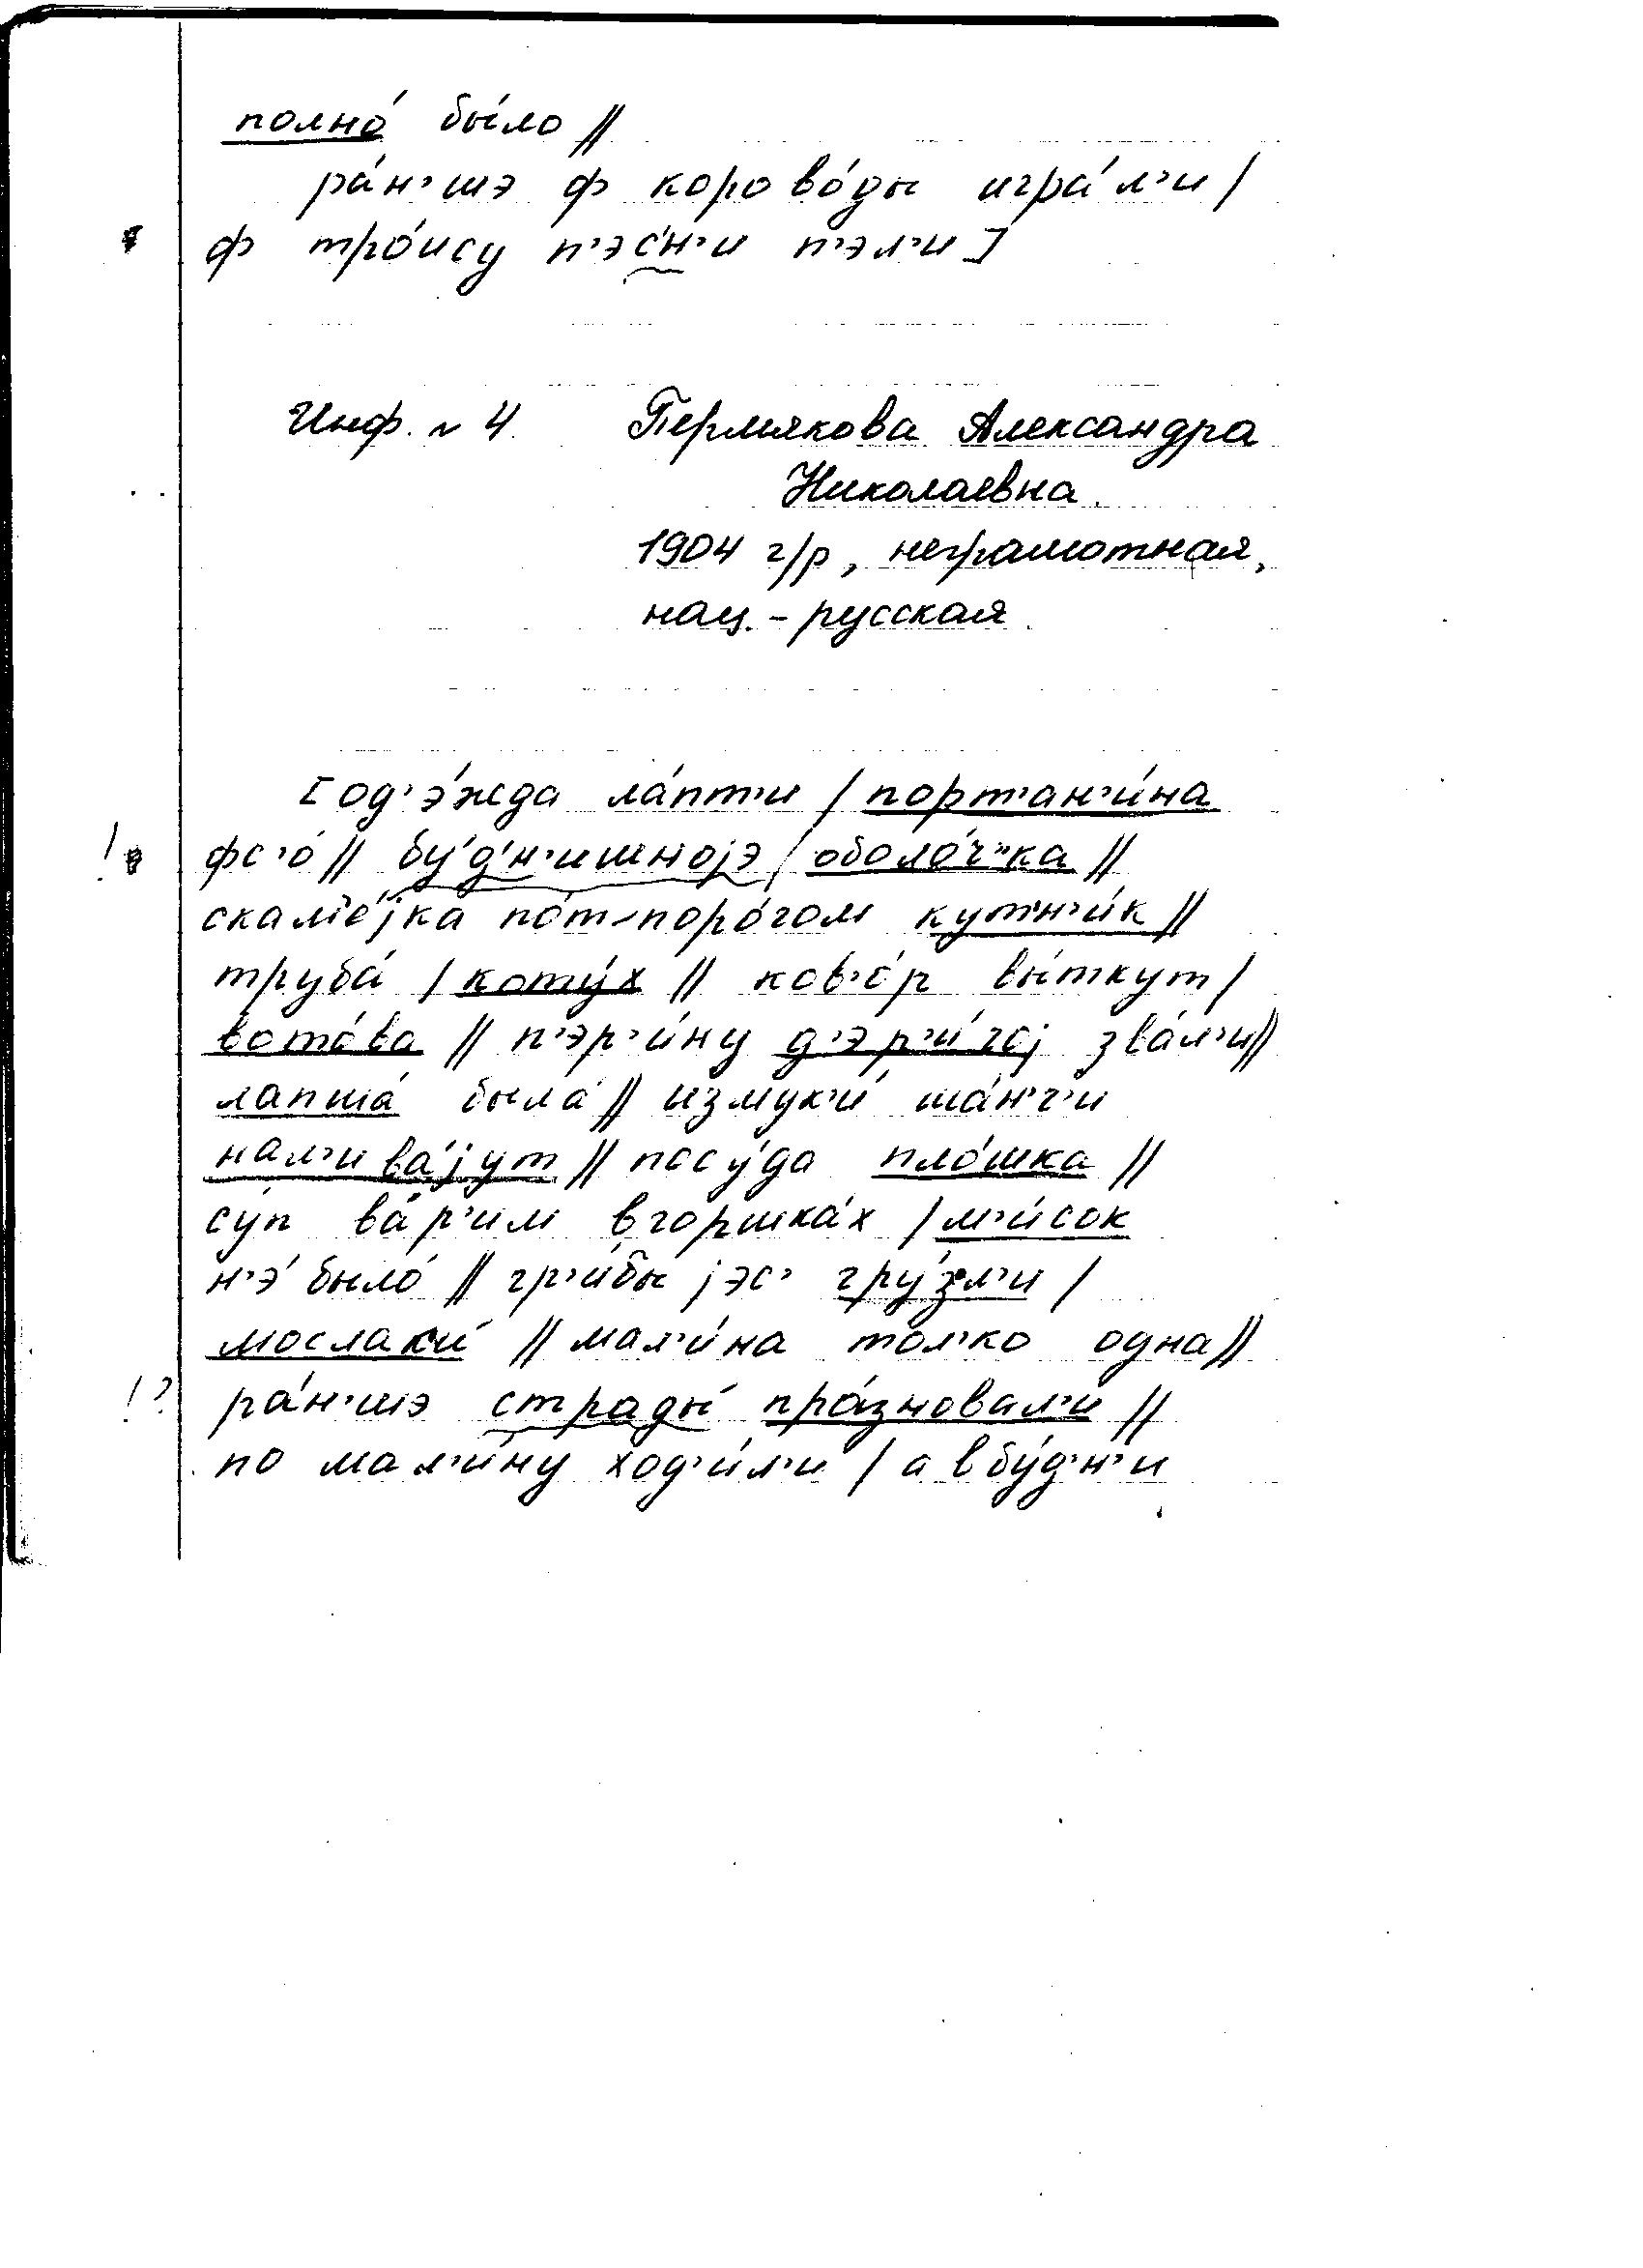 полно́ бы́ло //
ра́н'шэ ф корово́ды игра́л'и /
ф тро́ису п'эс'н'и п'эл'и ]
Инф. № 4 Пермякова Александра
Николаевна
1904 г/р, неграмотная,
нац. - русская
[ од'э́жда ла́пт'и / порт'ан'и́на
! фс'о́ // бу́д'н'ишнојэ / оболо́ч"ка //
скам'е́јка по́т-поро́гом кут'н'и́к //
труба́ / коту́х // ков'о́р вы́ткут /
вото́ва // п'эр'и́ну д'эр'и́гој зва́л'и //
лапша́ была́ // измук'и́ ша́н'г'и
нал'ива́јут // посу́да пло́шка //
су́п ва́р'им вгоршка́х / м'и́сок
н'э́ было́ // гр'ибы́ јэс' гру́зл'и /
мослаки́ // мал'и́на то́л'ко одна //
!? ра́н'шэ страды́ пра́зновал'и //
по мал'и́ну ход'и́л'и / а вбу́д'н'и